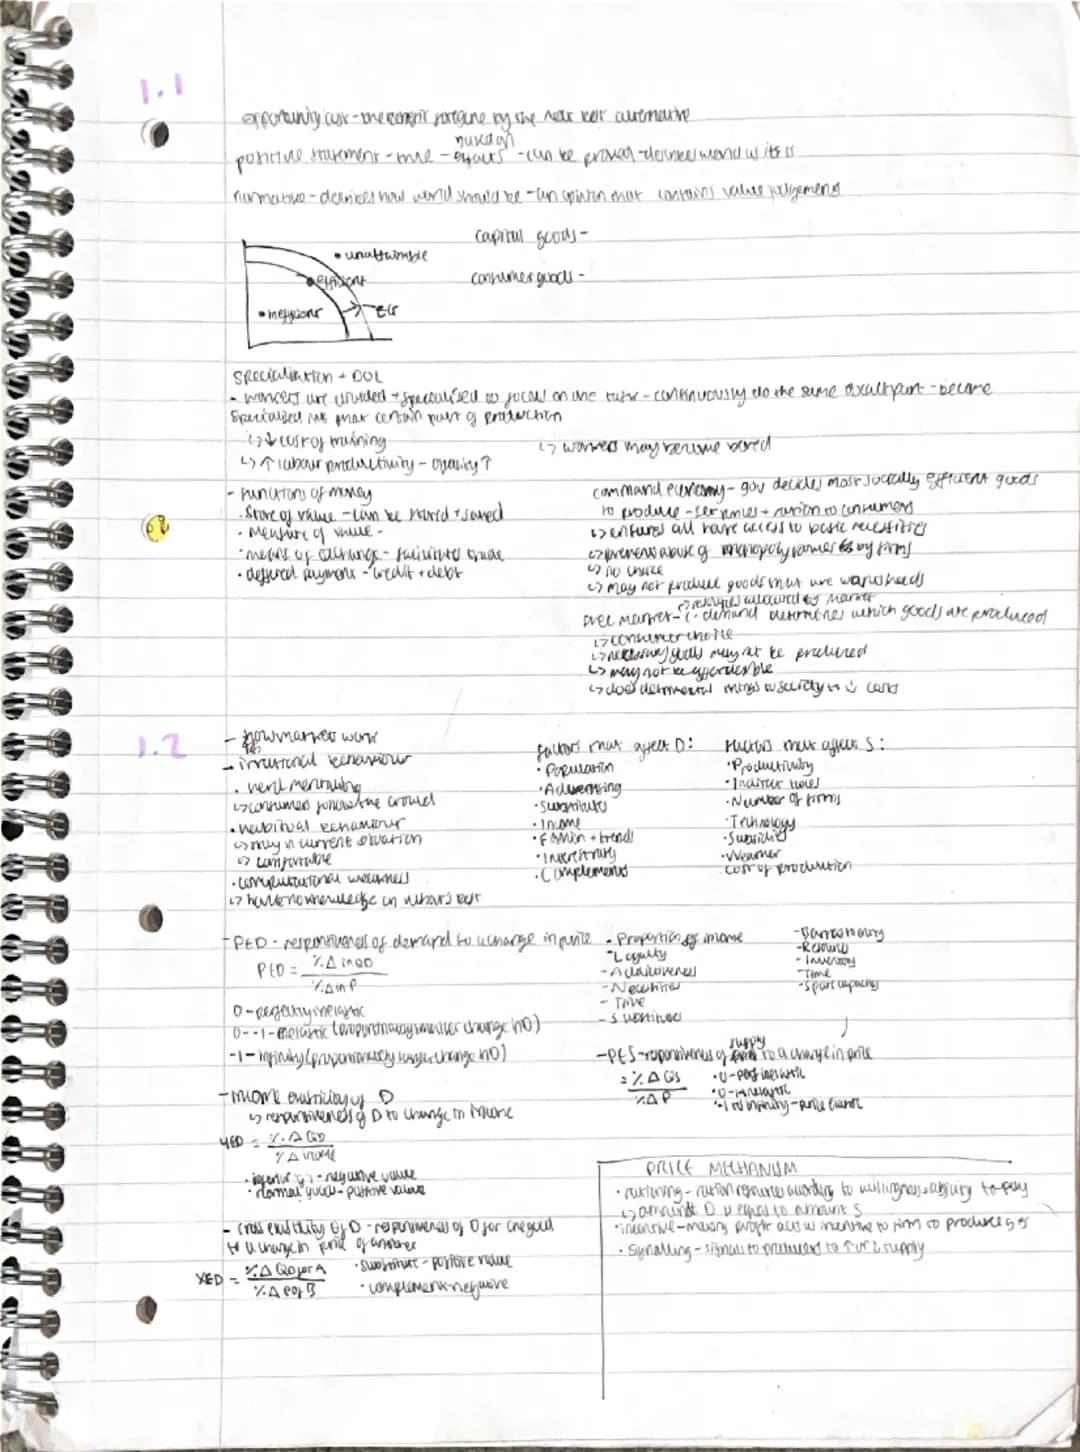 1.1
opportunity cost - the benefit foregone by the next best alternative
based on
positive statement - true - facts - can be proved - describes world as it is
normative - describes how world should be - an opinion that contains value judgements
capital goods -
consumer goods -
• unattainable
• efficient
• inefficient
EG
Specialisation + DOL
- workers are divided + specialised to focus on one task - continuously do the same exact part - become
specialised in that certain part of production
↳ ↓ cost of training
↳ ↑ labour productivity - quality ↑
↳ workers may become bored
- functions of money
• Store of value - can be stored + saved
• measure of value -
• means of exchange - facilitates trade
• deffered payment - credit + debt
command economy - gov decides most socially efficient goods
to produce - services + ration to consumers
↳ ensures all have access to basic necessities
↳ prevents abuse of monopoly power by firms
↳ no choice
↳ may not produce goods that are wants/needs
↳ resources allocated by market
free market - demand determines which goods are produced
↳ consumer choice
↳ necessary goods may not be produced
↳ may not be affordable
↳ does detrimental things to society to ↓ costs
1.2
- how markets work
- irrational behaviour
• herd mentality
↳ consumers follow the crowd
• habitual behaviour
↳ stay in current situation
↳ comfortable
• computational weakness
↳ have no knowledge on what's best
factors that affect D:
• Population
• Advertising
• Substitutes
• Income
• Fashion + trends
• Interest rates
• Complements
Factors that affect S:
• Productivity
• Indirect taxes
• Number of firms
• Technology
• Subsidies
• Weather
• Cost of production
- PED - responsiveness of demand to a change in price
PED = %Δ in QD / %Δ in P
0 - perfectly inelastic
0 - -1 - inelastic (proportionately smaller change in D)
-1 - infinity (proportionately larger change in D)
• Proportion of income
- Loyalty
- Addictiveness
- Necessities
- Time
- Substitutes
- Barriers to entry
- Resources
- Inventory
- Time
- Spare capacity
supply
- PES - responsiveness of to a change in price
= %ΔQS / %ΔP
• 0 - perf inelastic
• 0 - 1 inelastic
- Income elasticity of D
↳ responsiveness of D to change in income
YED = %ΔQD / %Δ income
• inferior g's - negative value
• normal goods - positive value
- cross elasticity of D - responsiveness of D for one good
to a change in price of another
XED = %Δ QD for A / %Δ P of B
• substitute - positive value
• complement - negative
PRICE MECHANISM
• rationing - ration resources according to willingness + ability to pay
↳ amount D is equal to amount S
• incentive - making profit acts as incentive to firm to produce g+s
• Signalling - signals to producers to ↑ or ↓ supply